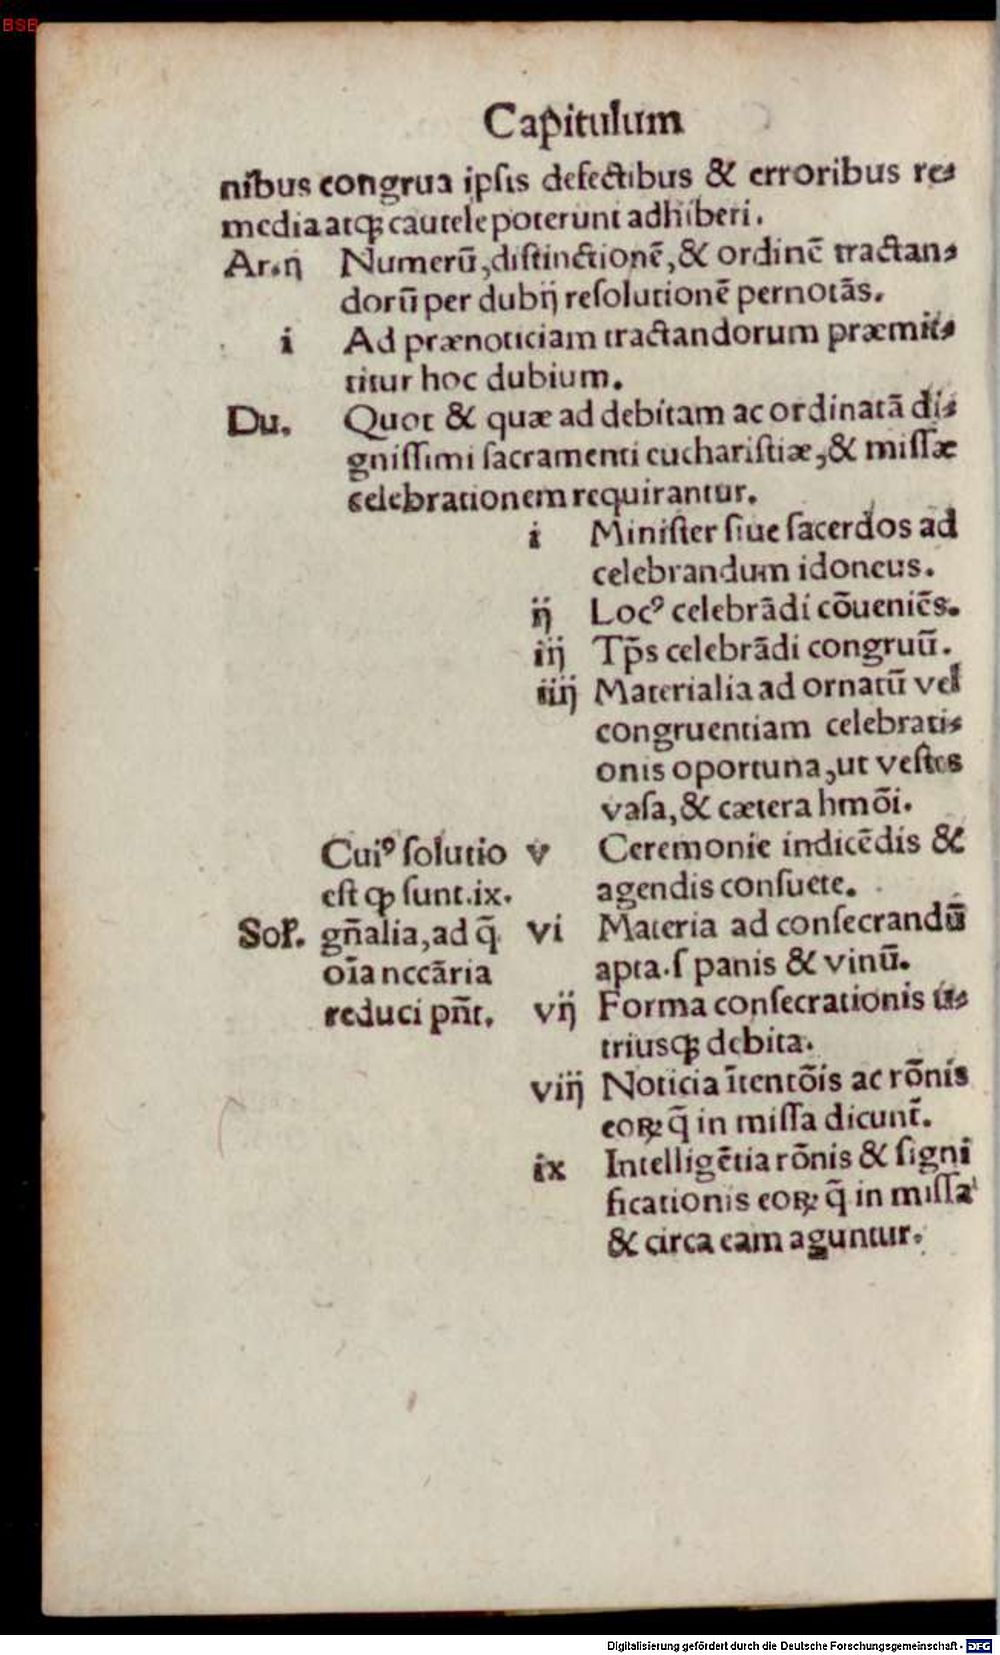 BSB
Capitulum
nibus congrua ipsis defectibus & erroribus re⸗
media atqꝫ cautele poterunt adhiberi.
Ar.ij Numerū, distinctionē, & ordinē tractan⸗
dorū per dubij resolutionē pernotās.
i Ad prænoticiam tractandorum præmit⸗
titur hoc dubium.
Du. Quot & quæ ad debitam ac ordinatā di⸗
gnissimi sacramenti eucharistiæ, & missæ
celebrationem requirantur.
i Minister siue sacerdos ad
celebrandum idoneus.
ij Locꝰ celebrādi cōueniēs.
iij Tp̄s celebrādi congruū.
iiij Materialia ad ornatū vel
congruentiam celebrati⸗
onis oportuna, ut vestes
vasa, & cætera hmōi.
Cuiꝰ solutio v Ceremonie indicēdis &
est qꝫ sunt.ix. agendis consuete.
Sol̕. gn̄alia, ad q̄ vi Materia ad consecrandū
oīa nccāria apta.s panis & vinū.
reduci pn̄t. vij Forma consecrationis u⸗
triusqꝫ debita.
viij Noticia ītentōis ac rōnis
eoꝝ q̄ in missa dicunt̄.
ix Intelligētia rōnis & signi
ficationis eoꝝ q̄ in missa
& circa eam aguntur.
Digitalisierung gefördert durch die Deutsche Forschungsgemeinschaft - DFG